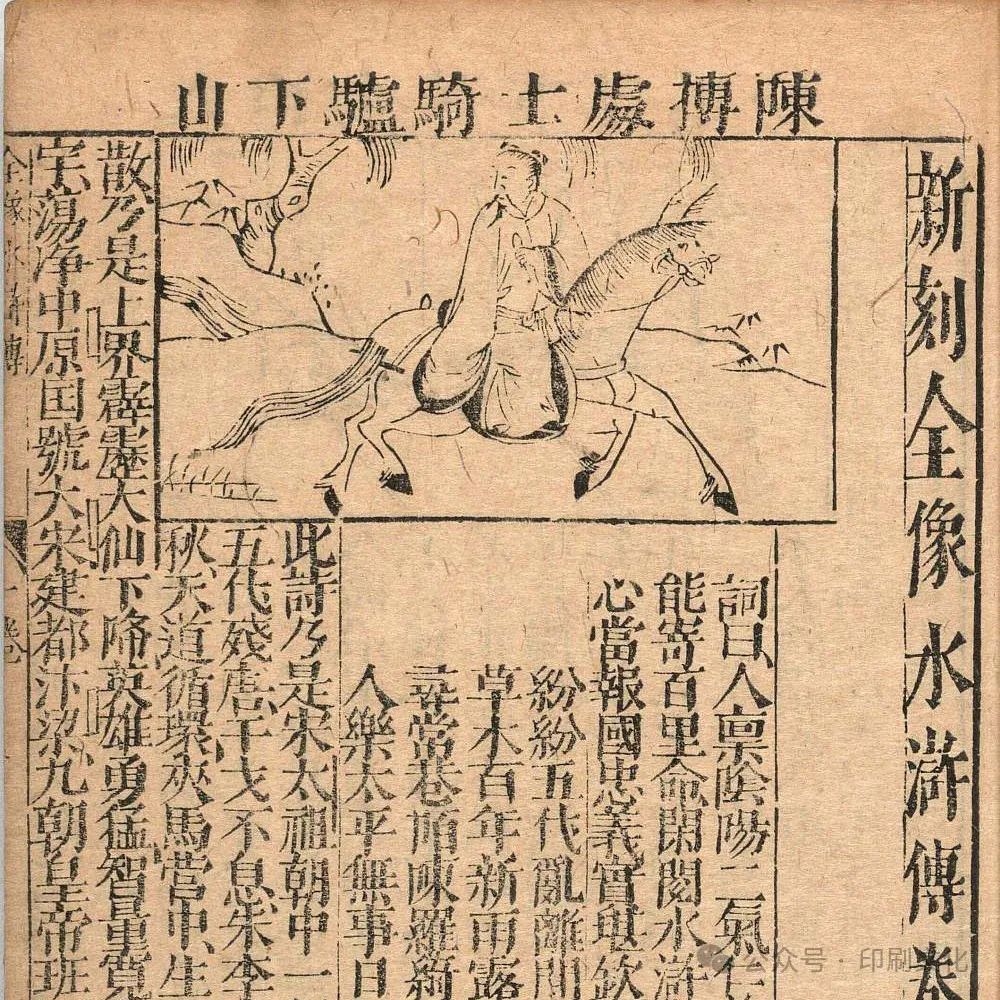 陳摶處士騎驢下山
新刻全像水滸傳卷
詞曰人禀陰陽二氣
能寄百里命閑閱水滸
心當報國忠義實堪欽
紛紛五代亂離間
草木百年新雨露
尋常巷陌陳羅綺
人樂太平無事日
此詩乃是宋太祖朝中一
五代殘唐干戈不息朱李
秋天道循環夾馬營中生
散乃是上界霹靂大仙下降英雄勇猛智量寬
宇蕩净中原囯號大宋建都汴梁九朝皇帝班
全像水滸傳
公众号 · 印刷